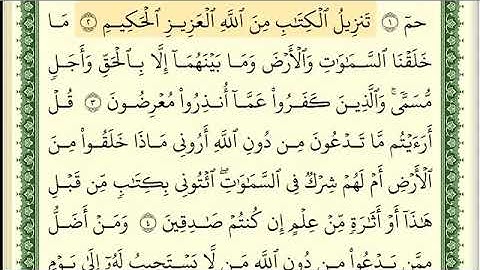 حمٓ ١ تَنزِيلُ ٱلْكِتَٰبِ مِنَ ٱللَّهِ ٱلْعَزِيزِ ٱلْحَكِيمِ ٢ مَا
خَلَقْنَا ٱلسَّمَٰوَٰتِ وَٱلْأَرْضَ وَمَا بَيْنَهُمَآ إِلَّا بِٱلْحَقِّ وَأَجَلٍ
مُّسَمًّى ۚ وَٱلَّذِينَ كَفَرُوا۟ عَمَّآ أُنذِرُوا۟ مُعْرِضُونَ ٣ قُلْ
أَرَءَيْتُم مَّا تَدْعُونَ مِن دُونِ ٱللَّهِ أَرُونِى مَاذَا خَلَقُوا۟ مِنَ
ٱلْأَرْضِ أَمْ لَهُمْ شِرْكٌ فِى ٱلسَّمَٰوَٰتِ ۖ ٱئْتُونِى بِكِتَٰبٍ مِّن قَبْلِ
هَٰذَآ أَوْ أَثَٰرَةٍ مِّنْ عِلْمٍ إِن كُنتُمْ صَٰدِقِينَ ٤ وَمَنْ أَضَلُّ
مِمَّن يَدْعُوا۟ مِن دُونِ ٱللَّهِ مَن لَّا يَسْتَجِيبُ لَهُۥٓ إِلَىٰ يَوْمِ